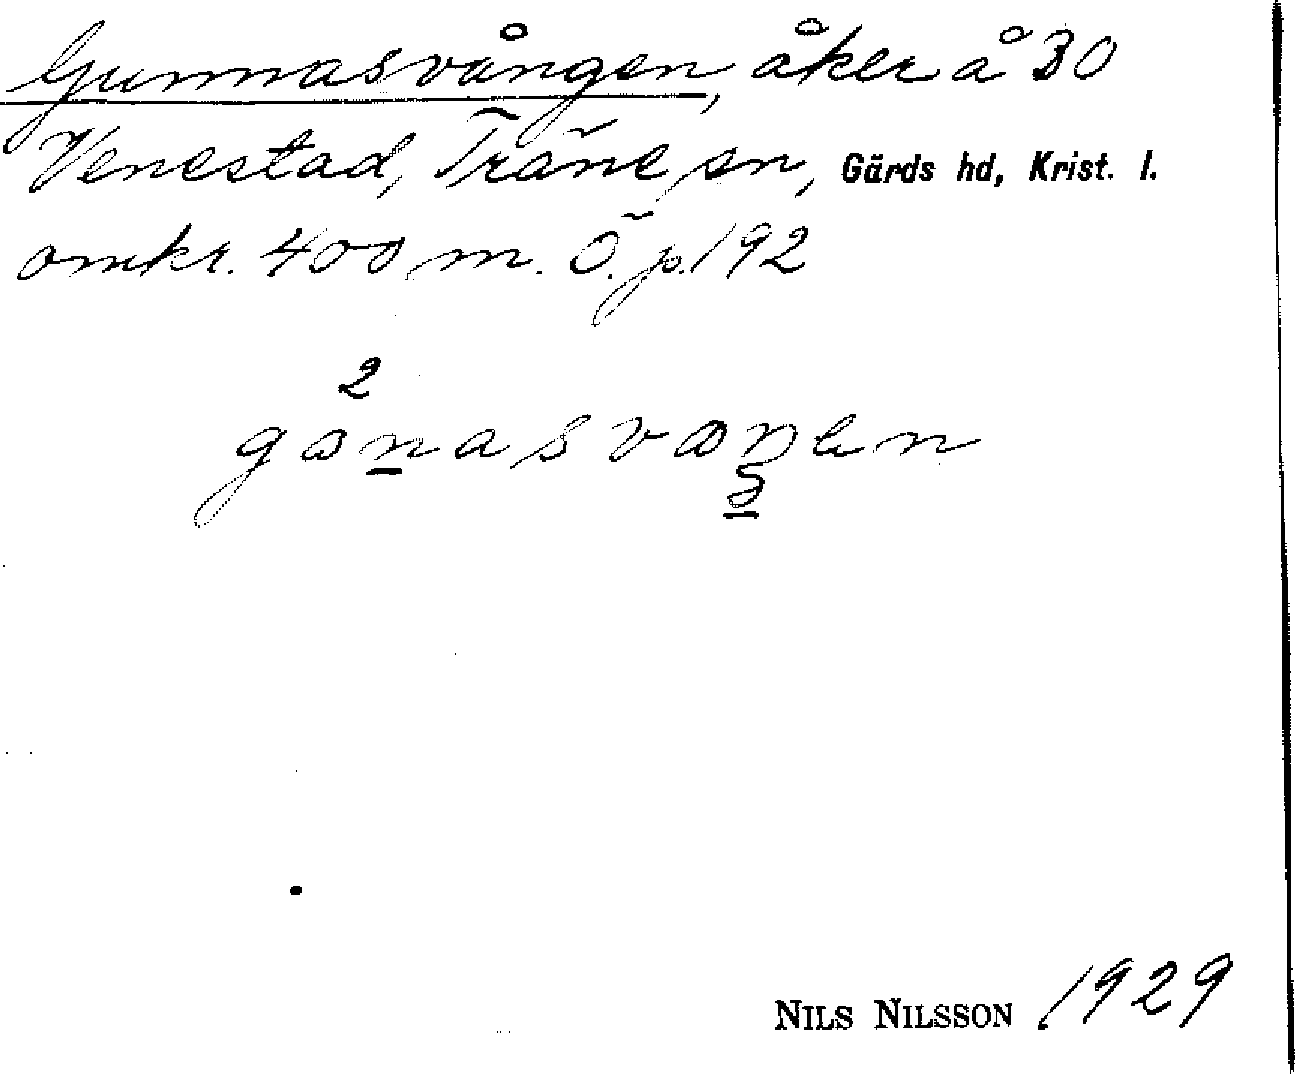 Gunnasvången, åker å 30
Venestad, Träne sn, Gärds hd, Krist. l.
omkr. 400 m. Ö. p. 192
2
NILS NILSSON 1929